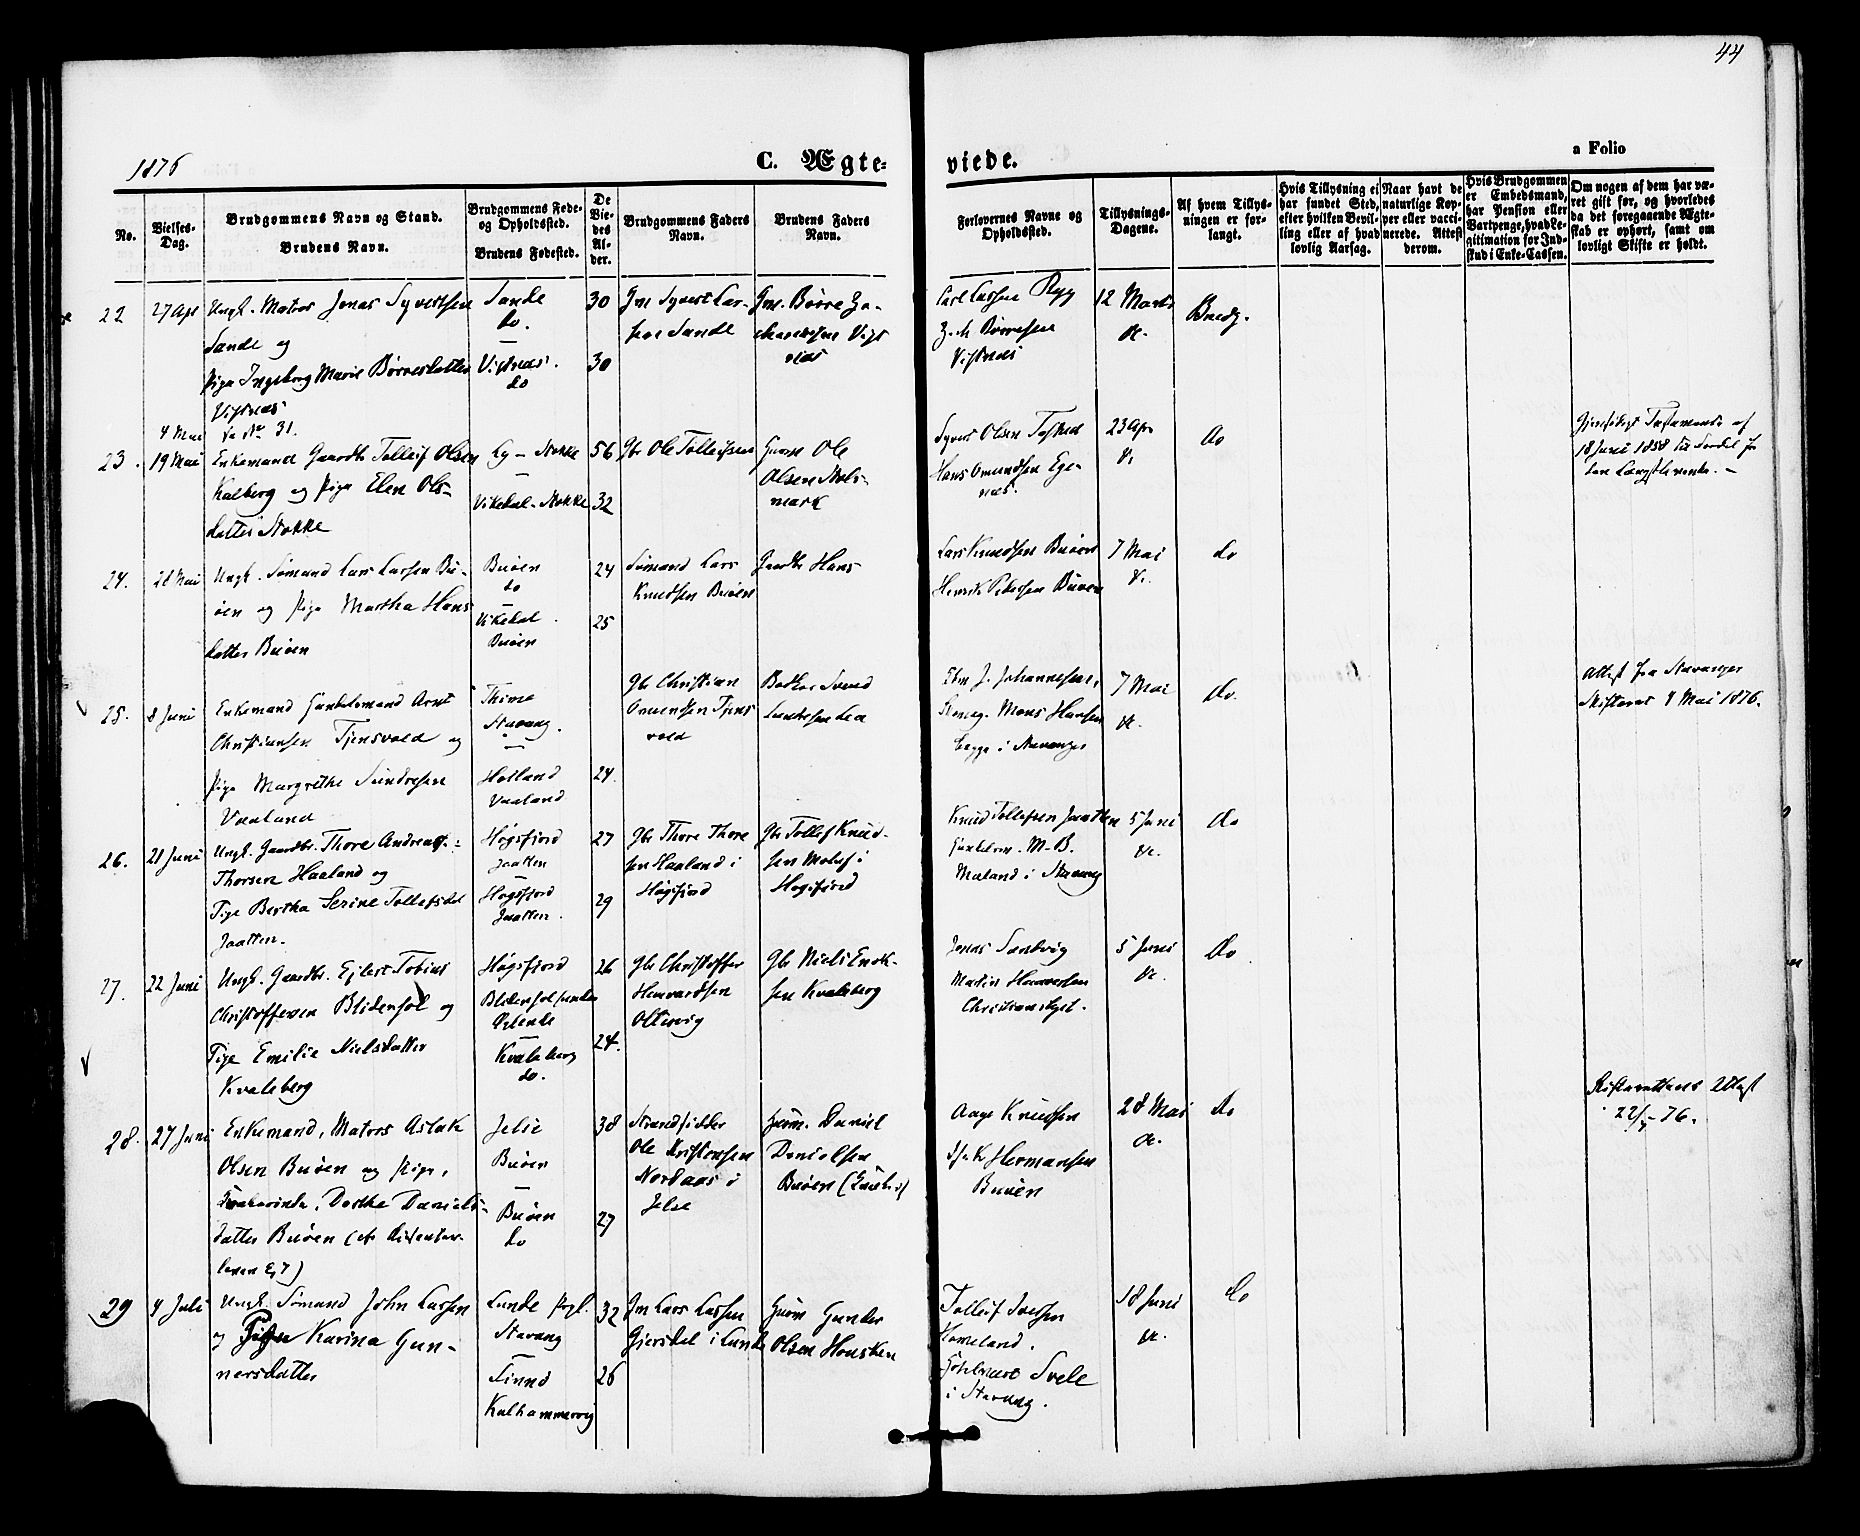 44
1876
C. Ægteviede.
a Folio
No.
Vielses-Dag.
Brudgommens Navn og Stand.
Brudens Navn.
Brudgommens Føde- og Opholdssted.
Brudens Fødested.
De Viedes Alder.
Brudgommens Faders Navn.
Brudens Faders Navn.
Forlovernes Navne og Opholdssted.
Tillysnings-Dagene.
Af hvem Tillysningen er forlangt.
Hvis Tillysning ei har fundet Sted, efter hvilken Bevilling eller af hvad lovlig Aarsag.
Naar havt de naturlige Kopper eller vaccinerede. Attest derom.
Hvis Brudgommen er Embedsmand, har Pension eller Vartpenge, hvad Legitimation for Indskud i Enke-Cassen.
Om nogen af dem har været gift før, og hvorledes da det foregaaende Ægteskab er ophørt, samt om lovligt Skifte er holdt.
22 27 Apr Ungk. Matros Jonas Syvertsen
Sande og
Pige Ingeborg Marie Børresdatter
Vistnæs
Sande
do.
Vistnæs.
do
30
30
Gm Syvert Larsen Sande
Gm. Børre Zachariassen Vistnæs
Carl Larsen Ryg
Z. M. Børresen
Vistnæs
12 Marts
Brudg.
4 Mai
No 31.
23. 19 Mai Enkemand Gaardbr Tolleif Olsen
Kalberg og Pige Elen Olsdatter Stokke
Ly - Stokke
Vikedal - Stokke
56
32
Gbr Ole Tolleifsen
Huusm Ole
Olsen Molsmark
Syvert Olsen Tasted
Hans Omundsen Egenæs.
23 Apr
do
Gjensidigt Testamente af
18 Juni 1858
den Længstlevende. -
24. 28 Mai Ungk. Sømand Lars Larsen Buøen og Pige Martha Hansdatter Buøen
Buøen
do
Vikedal
Buøen
24
25
Sømand Lars
Knudsen Buøen
Gaardbr Hans
Lars Knudsen Buøen
Henrik Pedersen Buøen
7 Mai
do
25. 8 Juni Enkemand Handelsmand Arnt
Christiansen Tjensvold og
Pige Margrethe Sundresen
Vaaland
Thime
Stavang.
Hetland
Vaaland
24.
Gbr Christian
Omundsen Tjensvold
Bødker Svend
J. Johannesen,
Mons Hansen
begge i Stavanger
7 Mai
do.
Attest fra Stavanger
Skifteret 4 Mai 1876.
26. 21 Juni Ungk. Gaardbr. Thore Andreas
Thorsen Haaland og
Pige Bertha Serine Tollefsdat
Jaatten.
Høgsfjord
Jaatten
Høgsfjord
Jaatten.
27
29
Gbr Thore Thoresen Haaland i
Høgsfjord
Gbr Tollef Knudsen i
Høgsfjord
Knud Tollefsen Jaatten
M. B.
Meland i Stavang
5 Juni
do
27. 22 Juni Ungk. Gaardbr. Ejlert Tobias
Christoffersen Blidensol og
Pige Emilie Nielsdatter
Kvaleberg
Høgsfjord
Blidensol
Kvaleberg
do.
26
24.
Gbr Christoffer
Oltesvig
Gbr Niels Enoksen Kvaleberg
Jonas Sandvig
Martin
5 Juni
do
28. 27 Juni Enkemand, Matros Aslak
Olsen Buøen og Pige,
Dorthe Danielsdatter Buøen
Jelse
Buøen
Buøen
do
38
27
Strandsidder
Ole Kristensen
Nordaas i
Jelse
Huusm. Daniel
Danielsen
Buøen
Aage Knudsen
Hermansen
Buøen
28 Mai
do
Skifterettens Attest
22/5-76.
29 4 Juli Ungk. Sømand John Larsen
og Pigen Karina Gunnersdatter
Lunde Pgl.
Stavang
Finnø
Kalhammervig
32
26
Gm Lars Larsen
Gjersdal i Lunde
Huusm Gunder
Olsen Housken
Tolleif Iversen
Hameland.
Svele
i Stavang.
18 Juni
do